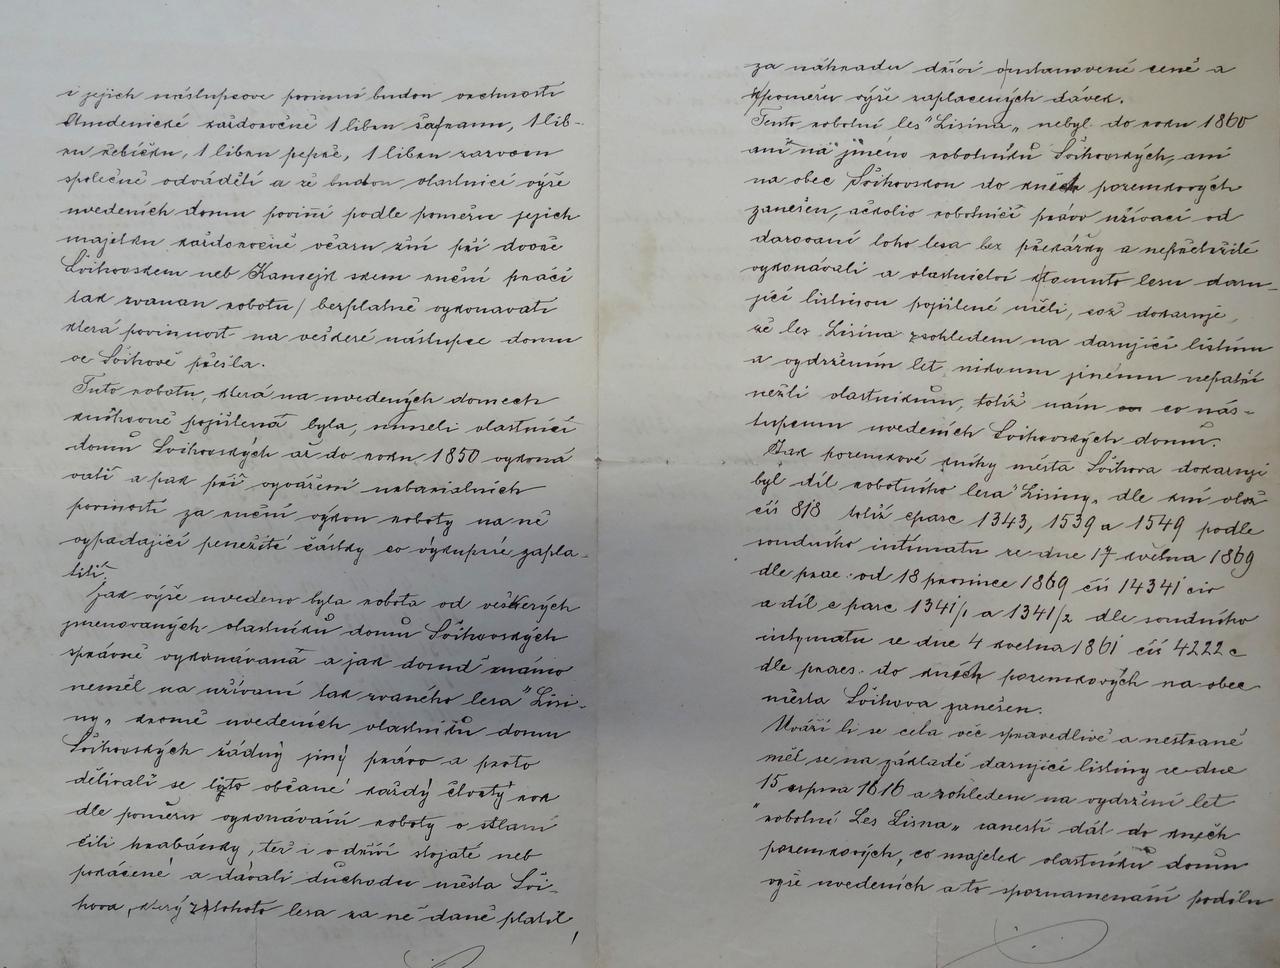 i jejich nástupcove povinni budou vrchnosti
Chudenické každoročně 1 libru šafranu, 1 lib-
ru řebíčku, 1 libru pepře, 1 libru zazvoru
společně odváděti a že budou vlastníci výše
uvedeních domu poviňi podle poměru jejich
majetku každoročně včasu žni při dvoře
Švihovskem neb Kamejk skem ruční prácí
tak zvanau robotu/ bezplatně vykonavati
která povinnost na veškeré nástupce domu
ve Švihově přešla.
Tuto robotu, která na uvedených domech
knihovně pojištena byla, museli vlastníci
domů Švihovských až do roku 1850 vykoná
vati a pak při vyvážení urbarialních
poviností za ruční výkon roboty na ně
vypadající peněžité částky co výkupné zapla-
titi.
Jak výše uvedeno byla robota od veškerých
jmenovaných vlastníků domů Švihovských
správně vykonávaná a jak domd známo
neměl na užívaní tak zvaného lesa "Lisi-
ny„ kromě uvedeních vlastníků domu
Švihovských žádný jiný právo a proto
dělivali se tyto občané každý čtvrtý rok
dle poměru vykonávaní roboty o stlaní
čili hrabánky, též i o dříví stojaté neb
pokácené a dávali důchodu města Švi-
hova, který z tohoto lesa za ně daně platil,
za náhradu dříví o ustanovené ceně a
v poměru výše zaplacených dávek.
Tento robotní les "Lisina„ nebyl do roku 1860
ani na jméno robotníků Švihovských, ani
na obec Švihovskou do knéch pozemkových
zanešen, ačkolio robotníčí právo užívací od
darovaní toho lesa bez překážky a nepřetržitě
vykonávali a vlastnictví k tomuto lesu daru-
jící listinou pojištené měli, což dokazuje,
že les Lisina zzohledem na darující listinu
a vydržením let nikomu jinému nepatří
nežli vlastníkům, totiž nám co nás-
tupcum uvedeních Švihovských domů.
Jak pozemkové knihy města Švihova dokazují
byl díl robotního lesa "Lisiny„ dle kní vlož
čís 818 totiž cparc 1343, 1539 a 1549 podle
soudního intimatu ze dne 17 května 1869
dle prae. od 18 prosince 1869 čís 14341 civ
a díl c parc 1341/1 a 1341/2 dle soudního
intymatu ze dne 4 května 1861 čís 4222 c
dle praes. do knéch pozemkových na obec
města Švihova zanešen.
Uváží li se cela věc spravedlivě a nestraně
měl se na základě darující listiny ze dne
15 srpna 1616 a zohledem na vydržení let
"robotní Les Lisna„ zanesti dát do knéch
pozemkových, co majetek vlastníků domu
výše uvedeních a to spoznamenání podílu